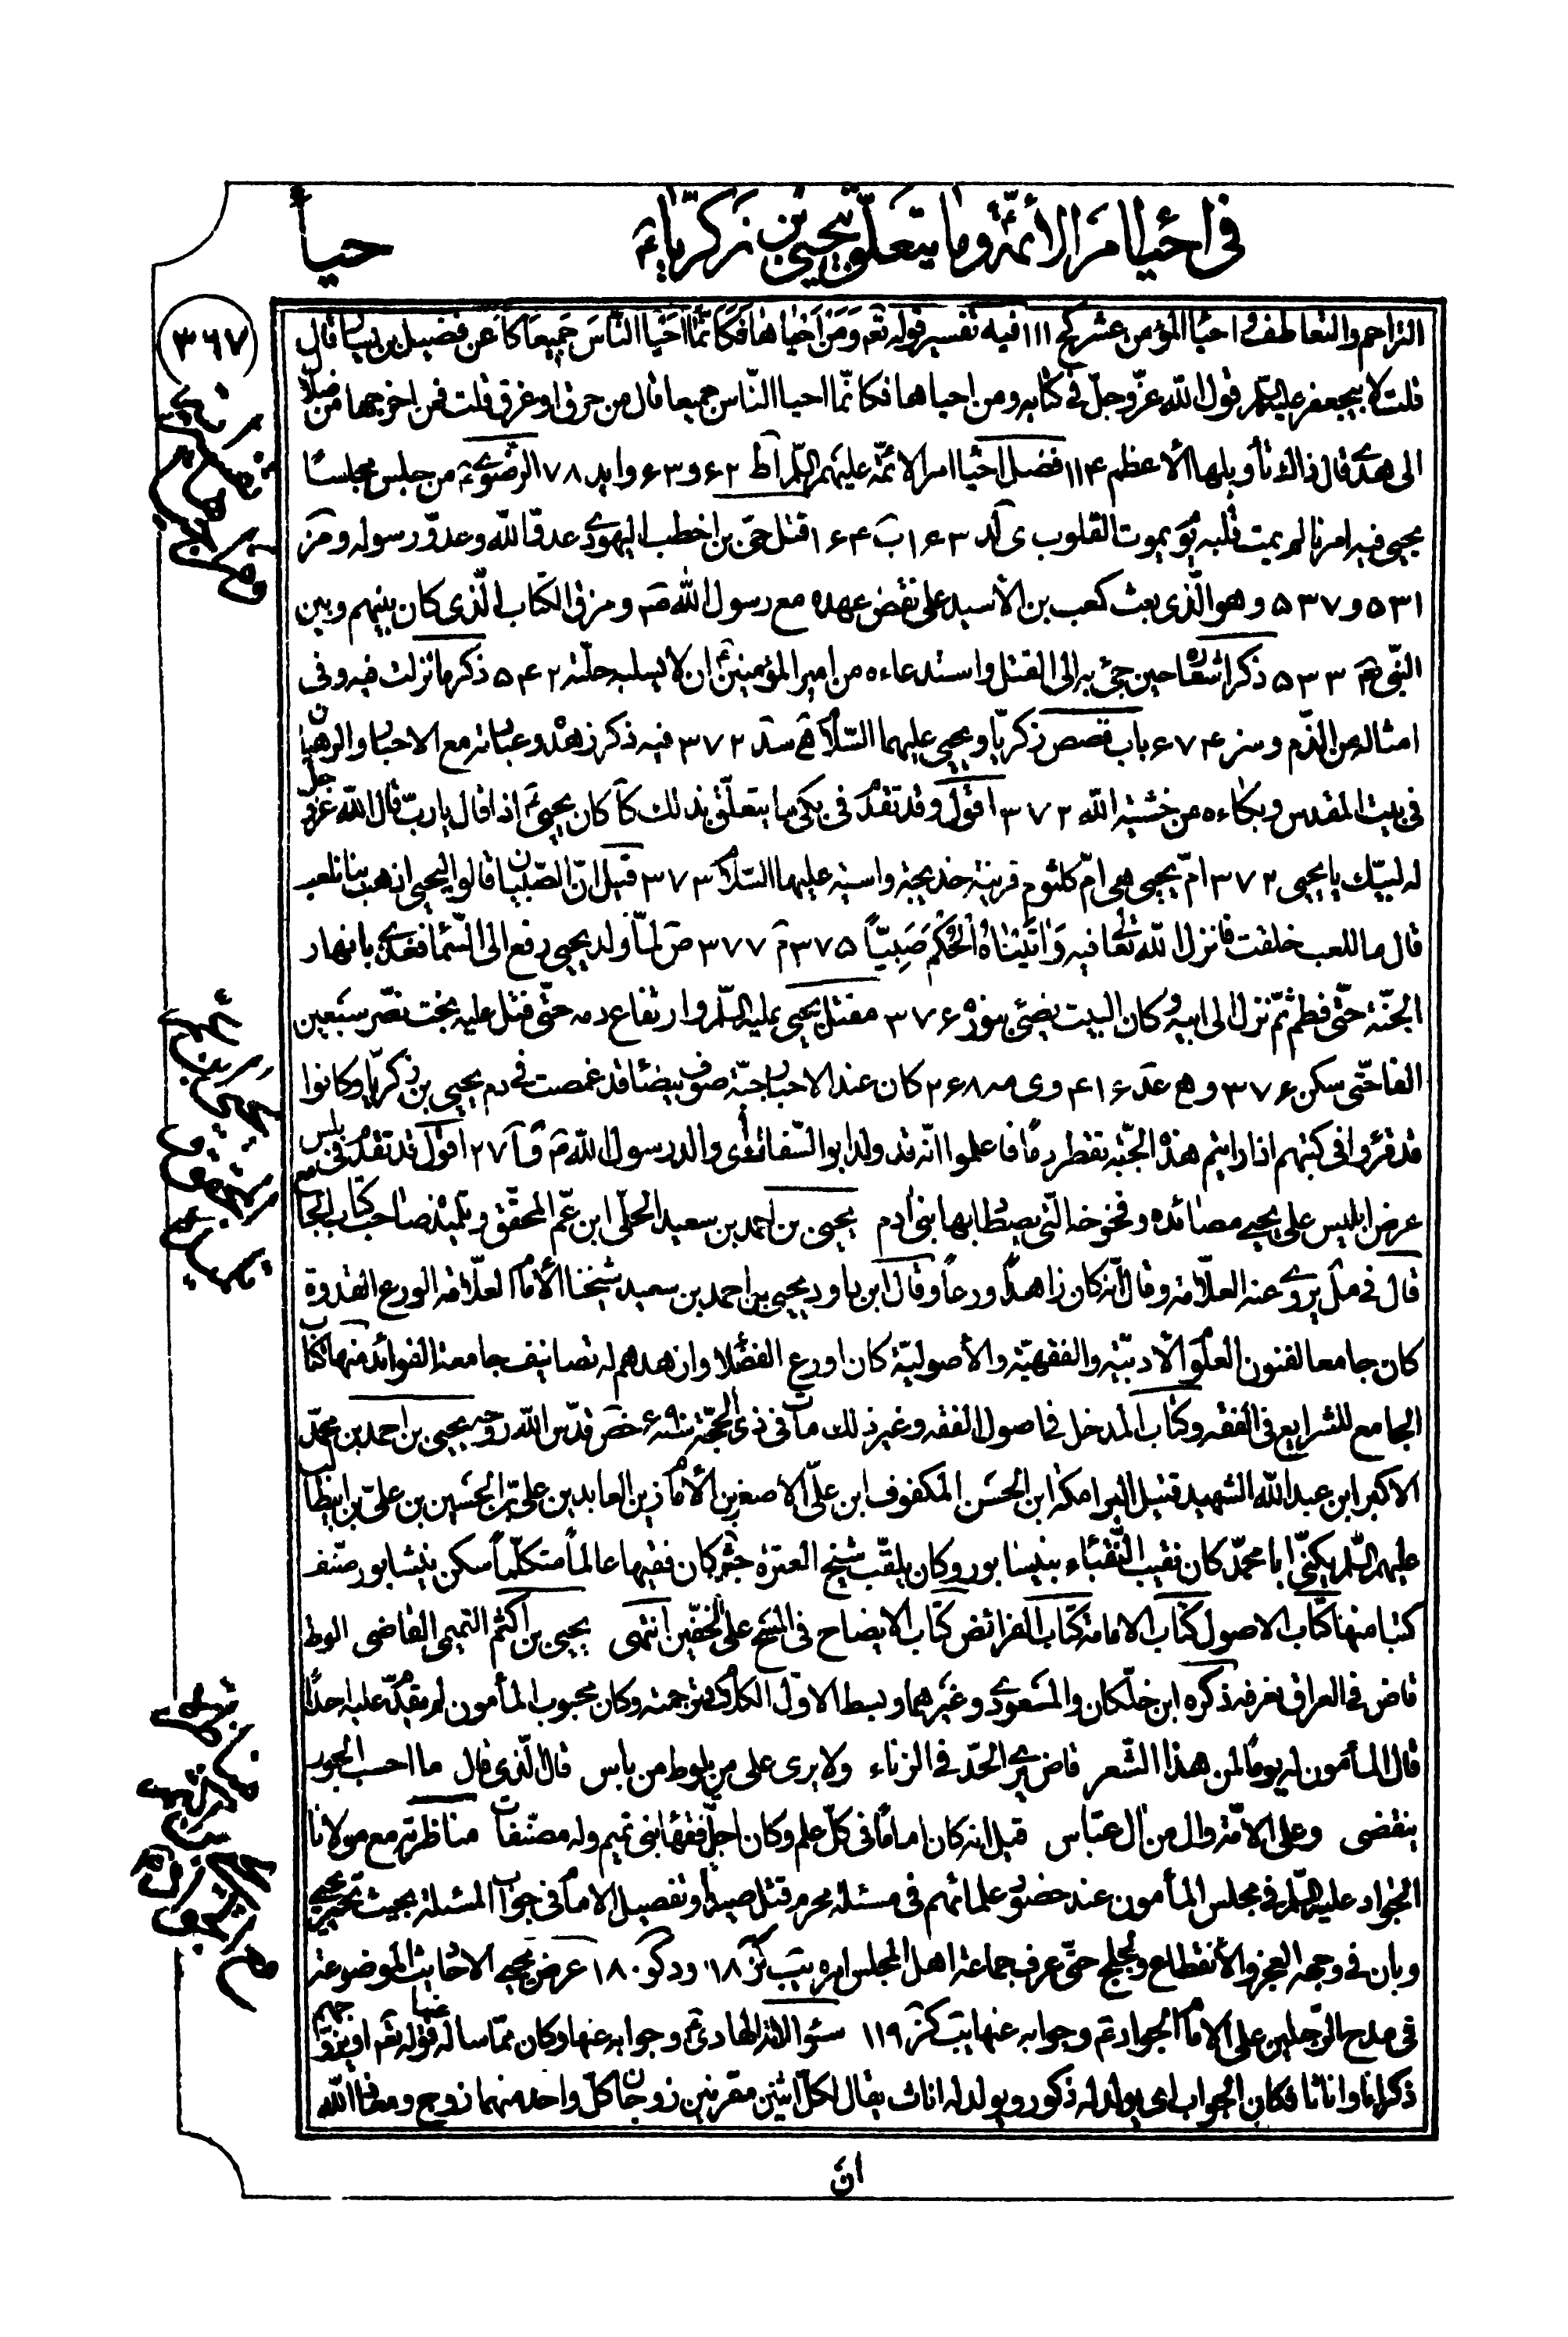 في احياء امر الأئمة وما يتعلق بيحيى بن زكريا ع
حيا
٣٦٧
التراحم والتعاطف واحياء المؤمن عشر كح ١١١ فيه تفسير قوله تعم وَمَنْ اَحْياها فَكَاَنَّما اَحْيَا النّاسَ جَميعًا كا عن فضيل بن يسار قال
قلت لابيجعفر عليه السّلم قول الله عزّ وجلّ في كتابه ومن احياها فكانّما احيا النّاس جميعا قال من حرق او غرق قلت فمن اخرجها من ضلال
الى هدى قال ذاك تأويلها الأعظم ١١٤ فضل احياء امر الائمّة عليهم السّلم آط ٦٢ و ٦٣ وايد ٧٨ الرضوي ع من جلس مجلسًا
يحيى فيه امرنا لم يمت قلبه يوم يموت القلوب ى كد ١٦٣ ب ١٦٤ قتل حىّ بن اخطب اليهودي عدوّ الله وعدوّ رسوله و مز
٥٣١ و ٥٣٧ وهو الّذى بعث كعب بن الأسيد على نقض عهده مع رسول الله ص ومزق الكتاب الّذى كان بينهم وبين
النّبى ص ٥٣٣ ذكر اشعاره حين جئ به الى القتل واستدعاءه من امير المؤمنين ع ان لا يسلبه حلّته ٥٤٢ ذكر ما نزلت فيه وفى
امثاله من الذّم و سز ٦٧٤ باب قصص زكريّا ويحيى عليهما السّلام ه سد ٣٧٢ فيه ذكر زهده وعبادته مع الاحبار والرهبان
فى بيت المقدس وبكاءه من خشية الله ٣٧٢ اقول وقد تقدّم فى بكى ما يتعلّق بذلك كا كان يحيى ع اذا قال يا ربّ قال الله عزّ وجلّ
له لبّيك يا يحيى ٣٧٢ امّ يحيى هى امّ كلثوم قرينة خديجة واسية عليها السّلام ٣٧٣ قيل انّ الصّبيان قالوا ليحيى اذهب بنا نلعب
قال ما للعب خلقت فانزل الله تعالى فيه وَاتَيْناهُ الْحُكْمَ صَبِيّاً ٣٧٥ م ٣٧٧ ص لمّا ولد يحيى رفع الى السّماء فغذى بانهار
الجنّة حتّى فطم ثمّ نزل الى ابيه وكان البيت يضئ بنوره ٣٧٦ مقتل يحيى عليه السّلم وارتفاع دمه حتّى قتل عليه بخت نصّر سبعين
الفا حتّى سكن ٣٧٦ و هع عد ٤١٦ و ى ٢٦٨ كان عند الاحبار جبّة صوف بيضاء قد غمصت فى دم يحيى بن زكريّا وكانوا
قد قرؤا فى كتبهم اذا رايتم هذه الجبّة تقطر دمًا فاعلموا انّه قد ولد ابو السّفاك اى والد رسول الله ص و آ ٢٧ اقول قد تقدّم فى بلس
عرض ابليس على يحيى مصائده وفخوخه التى يصطاد بها بنى ادم يحيى بن احمد بن سعيد الحلّى ابن عمّ المحقّق وتلميذه صاحب كتاب الجامع
قال فى مل يروى عنه العلّامة وقال انّه كان زاهدًا ورعاً وقال ابن داود يحيى بن احمد بن سعيد شيخنا الأمام العلّامة الورع القدوة
كان جامعا لفنون العلوم الأدبيّة والفقهيّة والأصوليّة كان اورع الفضلاء وازهدهم له تصانيف جامعة الفوائد منها كتاب
الجامع للشرايع فى الفقه وكتاب المدخل فى اصول الفقه وغير ذلك مات فى ذى الحجّة سنة ٦٩٠ قدّس الله روحه يحيى بن احمد بن محمّد
الاكبر ابن عبد الله الشهيد قتيل البرامكة ابن الحسَن المكفوف ابن علىّ الاصغر بن الأمام زين العابدين على بن الحسين بن علىّ بن ابيطالب
عليهم السّلم يكنّى ابا محمّد كان نقيب النّقباء بنيسابور وكان يلقّب شيخ العترة كان فقيها عالماً متكلّماً سكن بنيشابور صنّف
كتبا منها كتاب الاصول كتاب الامامة كتاب الفرائض كتاب الايضاح فى المسح على الخفّين انتهى يحيى بن اكثم التميمى القاضى الوط
قاض فى العراق نعرفه ذكره ابن خلّكان والمسعودى وغيرهما وبسط الاوّل الكلام فى ترجمته وكان محبوب المأمون لم يقدّم عليه احدًا
قال المأمون له يومًا لمن هذا الشّعر قاض يرى الحدّ فى الزناء ولا يرى على من يلوط من باس قال الّذى قال ما احسب الجور
ينقضى وعلى الامّة وال من ال عبّاس قيل انه كان امامًا فى كلّ علم وكان اجلّ فقهاء بنى تميم وله مصنّفات مناظرته مع مولانا
الجواد عليه السّلم فى مجلس المأمون عند حضور علمائهم فى مسئلة محرم قتل صيدًا وتفصيل الامام فى جواب المسئلة بحيث تحيّر يحيى
وبان فى وجهه العجز والأنقطاع ولجلج حتّى عرف جماعة اهل المجلس امره يب كز ١١٨ و د كو ١٨٠ عرض يحيى الاحاديث الموضوعة
فى مدح الرّجلين على الامام الجواد ع وجوابه عنها يب كز ١١٩ سئوالاته الهادى ع وجوابه عنها وكان ممّا ساله عنها قوله تعم او يزوّجهم
ذكرانا واناثا فكان الجواب اى يولد له ذكور ويولد له اناث يقال لكلّ اثنين مقرنين زوجان كلّ واحد منهما زوج ومعاذ الله
ان